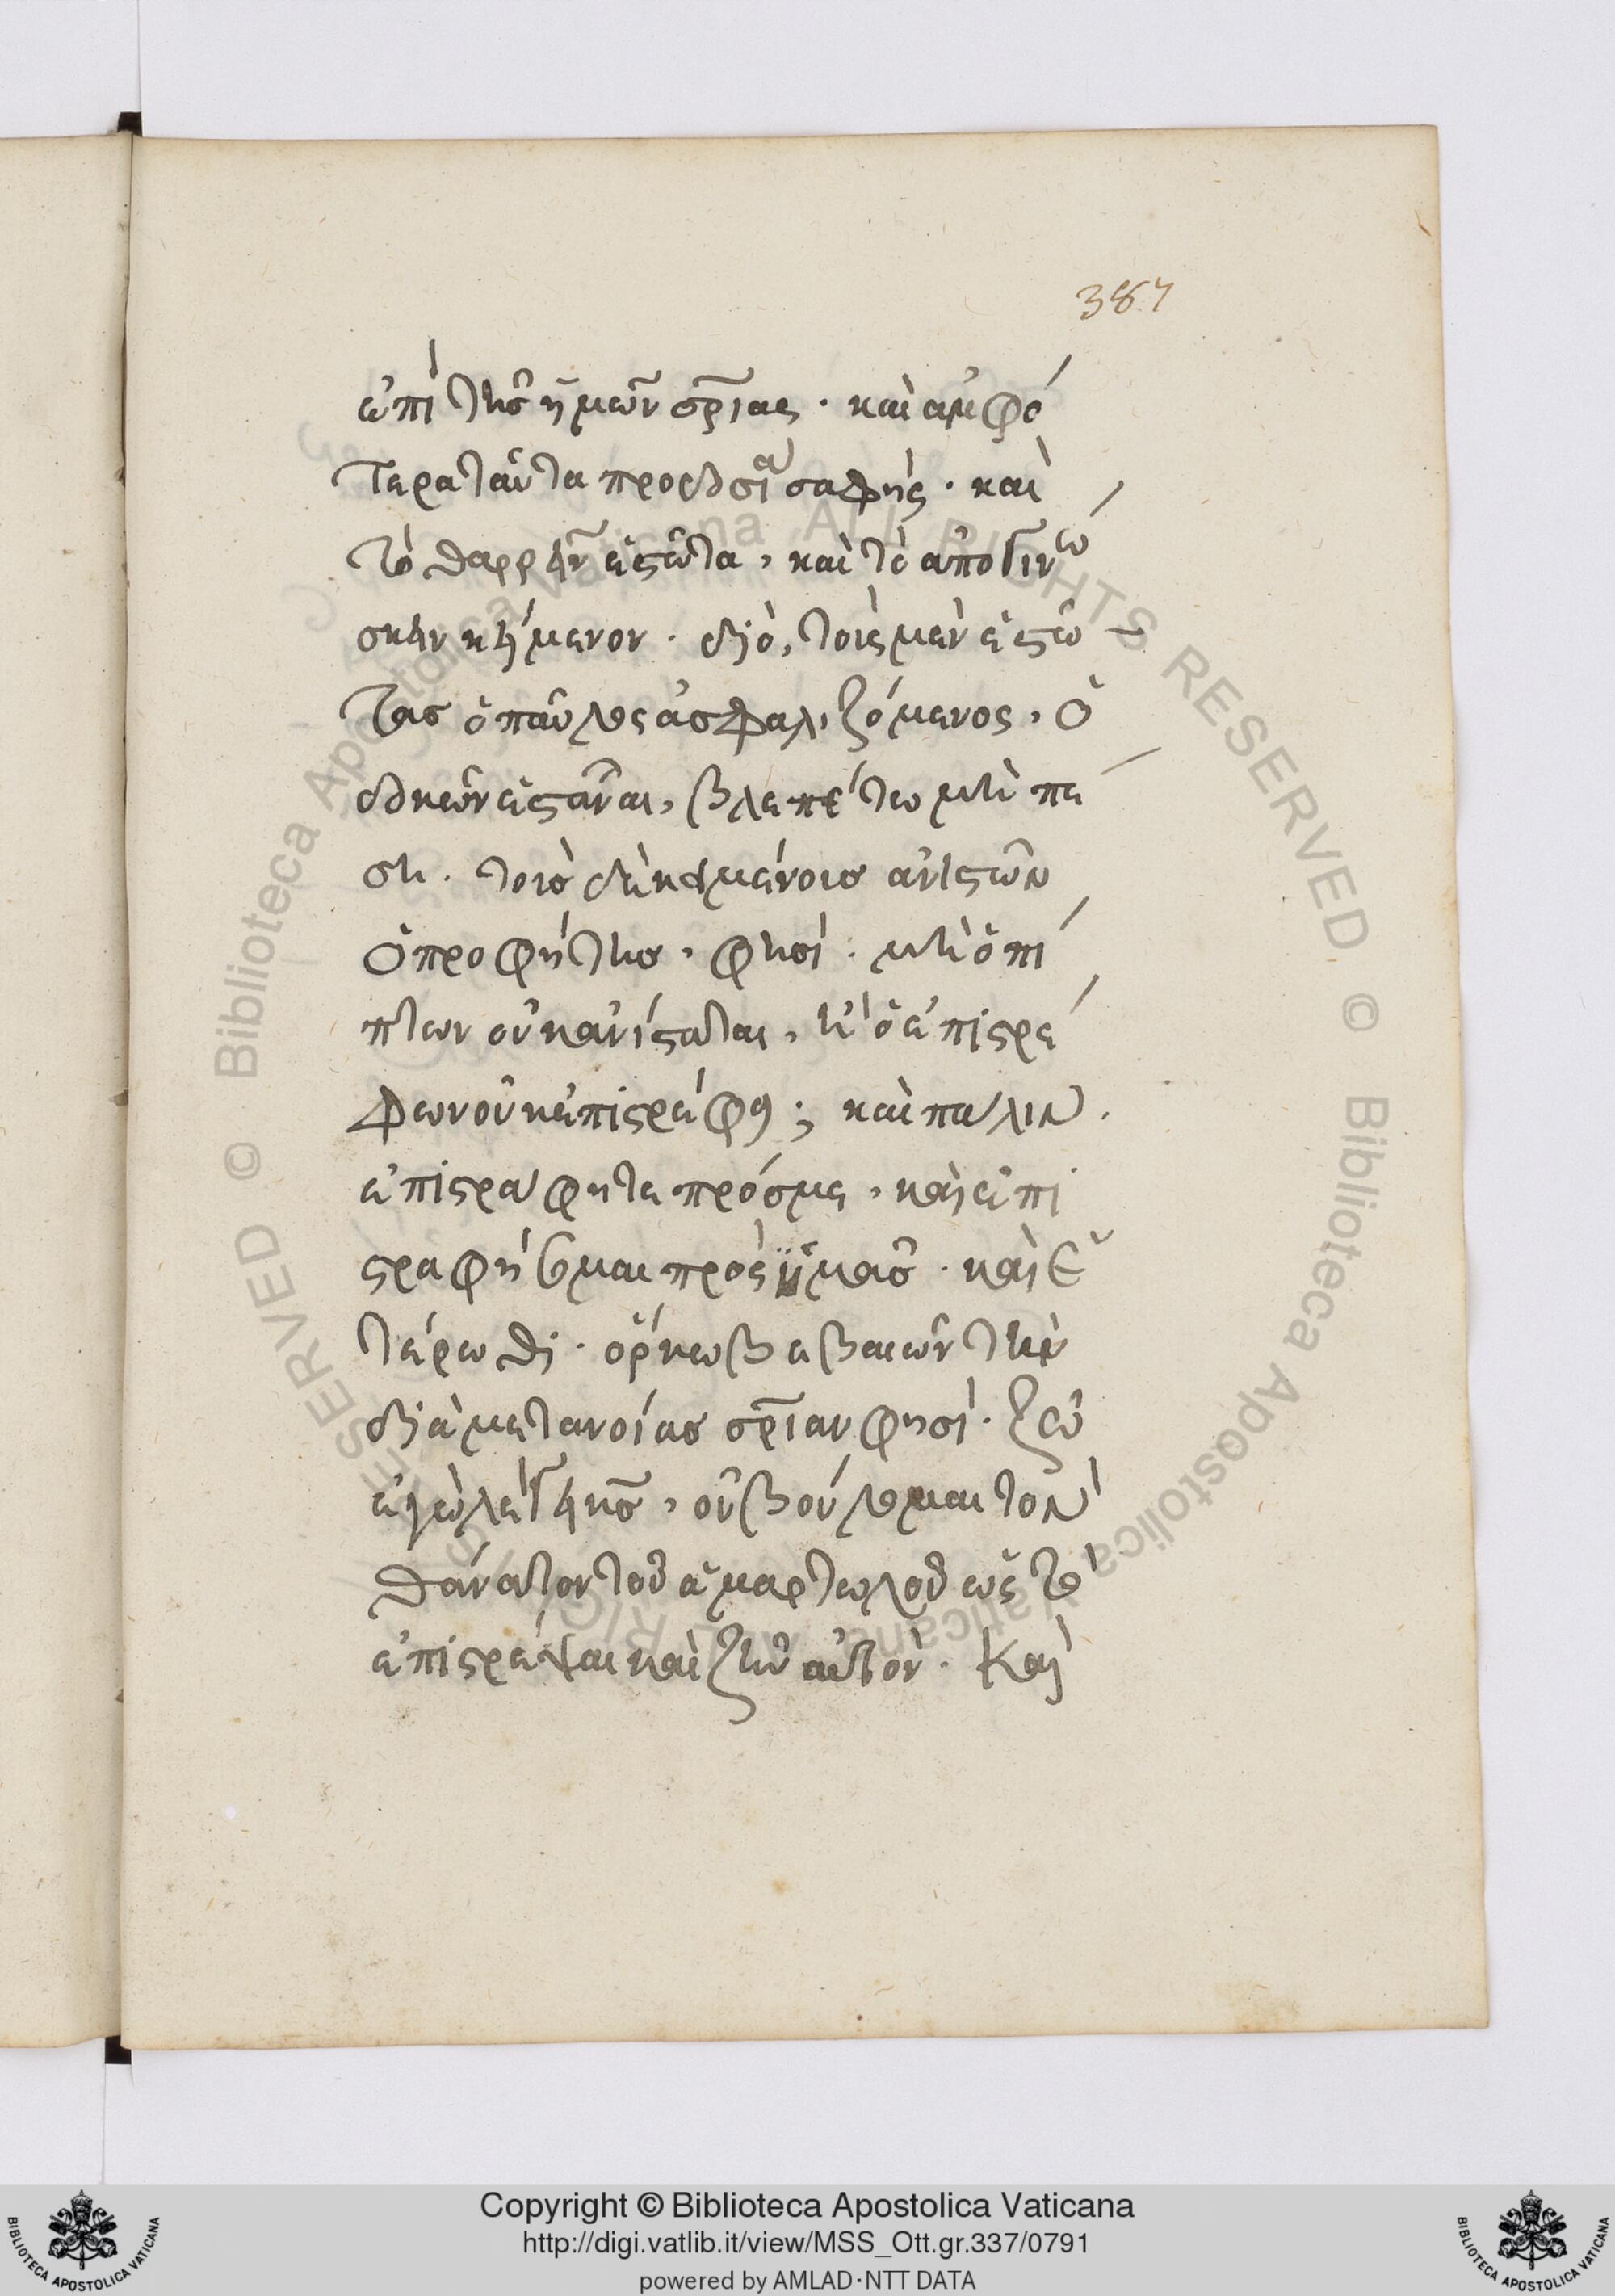 387
ἐπὶ τῆς ἡμῶν σρ̅ιας · καὶ ἀμφό
τερα ταῦτα προδοσία σαφής · καὶ
τὸ θαρρεῖν ἑστῶτα, καὶ τὸ ἀπογινώ
σκειν κείμενον · διὸ, τοὺς μὲν ἑστῶ
τας ὁ παῦλος ἀσφαλιζόμενος, ὁ
δοκῶν ἑστᾶναι, βλεπέτω μὴ πέ
ση · τοῖς δὲ κειμένοις ἀνιστῶν
ὁ προφήτης, φησί · μὴ ὁ πί
πτων οὐκ ἀνίσταται, ἢ ὁ ἐπιστρέ
φων οὐκ ἐπιστρέφει; καὶ πάλιν ·
ἐπιστράφητε πρός με, καὶ ἐπι
στραφήσομαι πρὸς ὑμᾶς · καὶ ἑ
τέρωθι · ὅρκω βεβαιῶν τὴν
διὰ μετανοίας σρ̅ιαν φησί · ζῶ
ἐγὼ λέγει κς̅, οὐ βούλομαι τὸν
θάνατον τοῦ ἁμαρτωλοῦ ὡς τὸ
ἐπιστρέψαι καὶ ζῆν αὐτόν · Καὶ
Copyright © Biblioteca Apostolica Vaticana
http://digi.vatlib.it/view/MSS_Ott.gr.337/0791
powered by AMLAD·NTT DATA
BIBLIOTECA APOSTOLICA VATICANA
BIBLIOTECA APOSTOLICA VATICANA
© Biblioteca Apostolica Vaticana ALL RIGHTS RESERVED
© Biblioteca Apostolica Vaticana ALL RIGHTS RESERVED